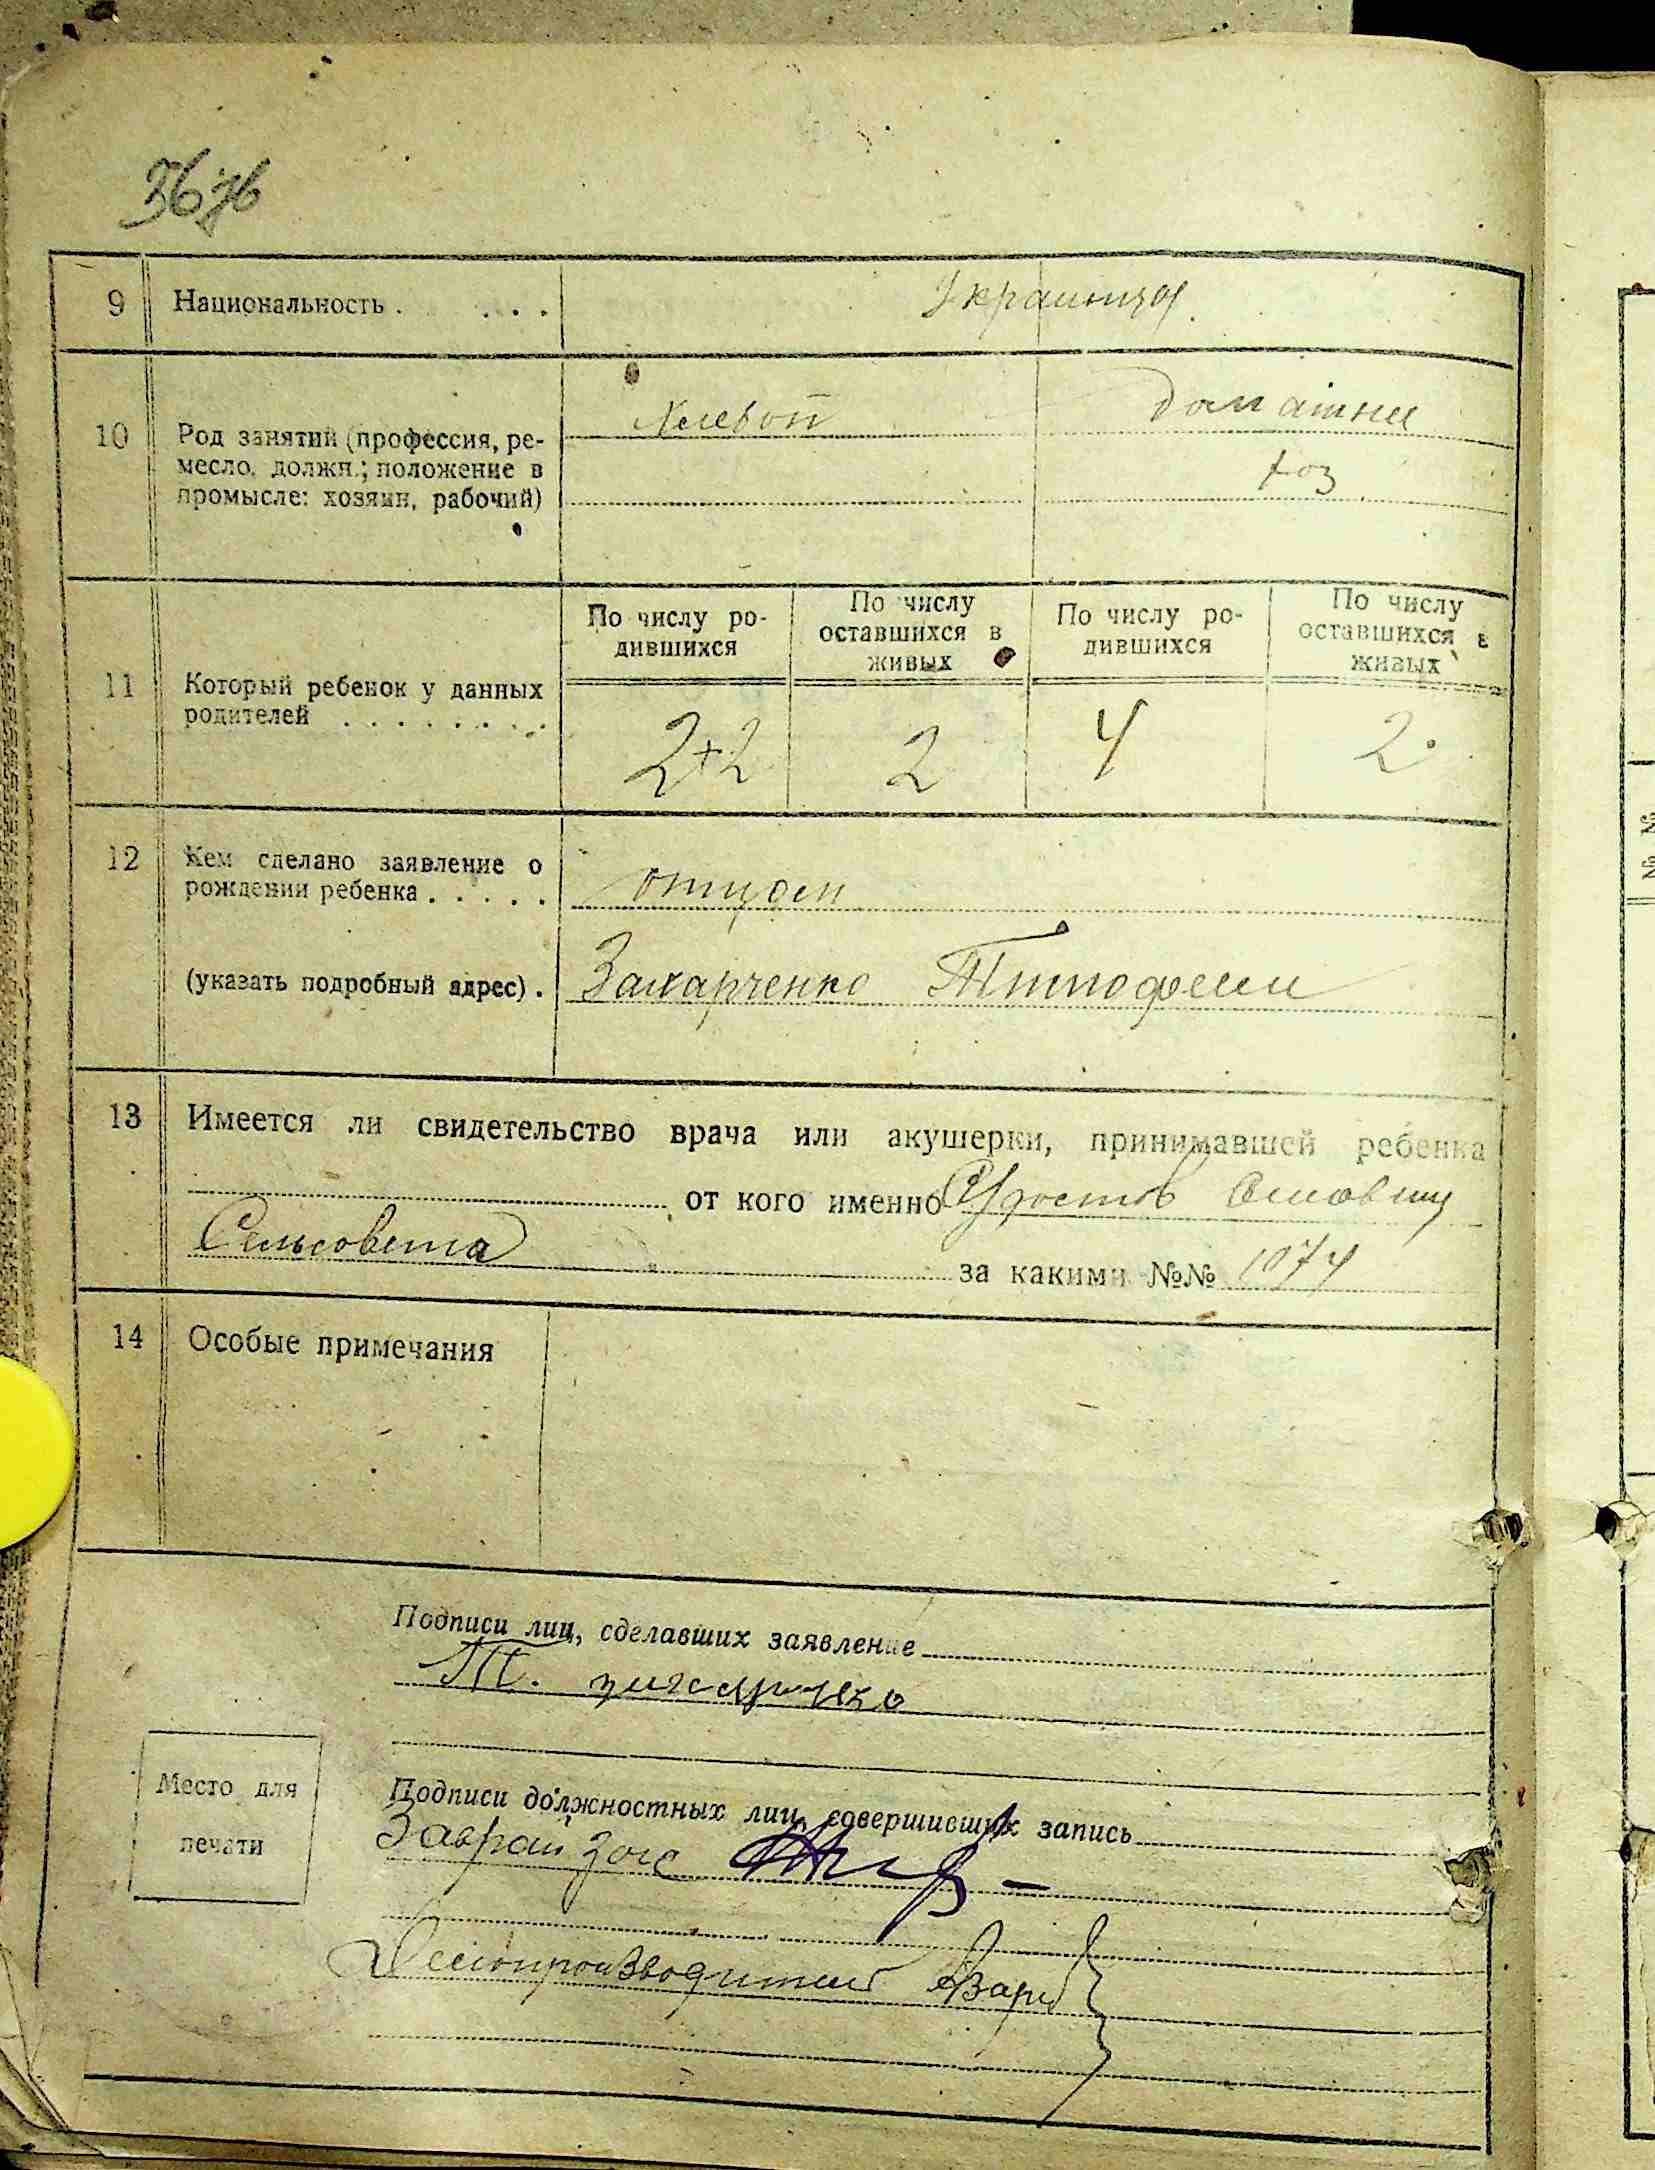 36
9 Национальность . . . . Украинцы
10 Род занятий (профессия, ре-
месло, должн.; положение в
промысле: хозяин, рабочий)
домашни
хоз
11 Который ребенок у данных
родителей . . . . . . . .
По числу ро-
дившихся
По числу
оставшихся в
живых
По числу ро-
дившихся
По числу
оставшихся в
живых
2+2 2 4 2
12 Кем сделано заявление о
рождении ребенка . . . . . отцом
(указать подробный адрес) . Захарченко Тимофеем
13 Имеется ли свидетельство врача или акушерки, принимавшей ребенка
от кого именно
Сельсовета за какими №№ 1074
14 Особые примечания
Подписи лиц, сделавших заявление
Т.
Место для
печати
Подписи должностных лиц, совершивших запись
Заврай загс
Делопроизводитель
№ №